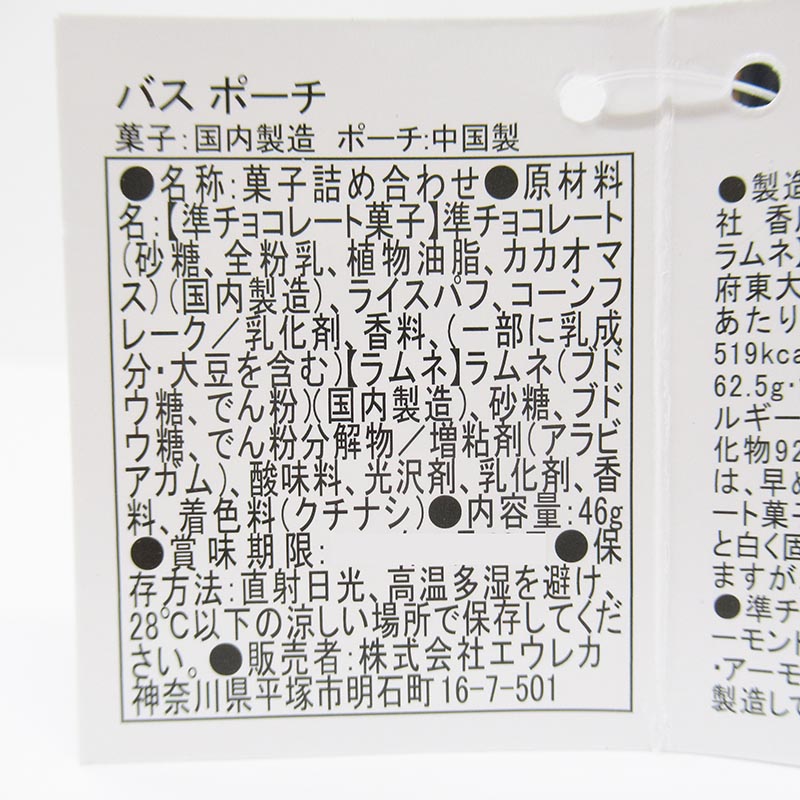 バス ポーチ
菓子:国内製造 ポーチ:中国製
●名称:菓子詰め合わせ●原材料
名:【準チョコレート菓子】準チョコレート
(砂糖、全粉乳、植物油脂、カカオマ
ス)(国内製造)、ライスパフ、コーンフ
レーク/乳化剤、香料、(一部に乳成
分・大豆を含む)【ラムネ】ラムネ(ブド
ウ糖、でん粉)(国内製造)、砂糖、ブド
ウ糖、でん粉分解物/増粘剤(アラビ
アガム)、酸味料、光沢剤、乳化剤、香
料、着色料(クチナシ)●内容量:46g
●賞味期限:
●保
存方法:直射日光、高温多湿を避け、
28℃以下の涼しい場所で保存してくだ
さい。●販売者:株式会社エウレカ
神奈川県平塚市明石町16-7-501
●製造
社 香
ラムネ】
府東大
あたり
519kca
62.5g・
ルギー
化物92
は、早め
ート菓子
と白く固
ますが
●準チ
ーモンド
・アーモ
製造して